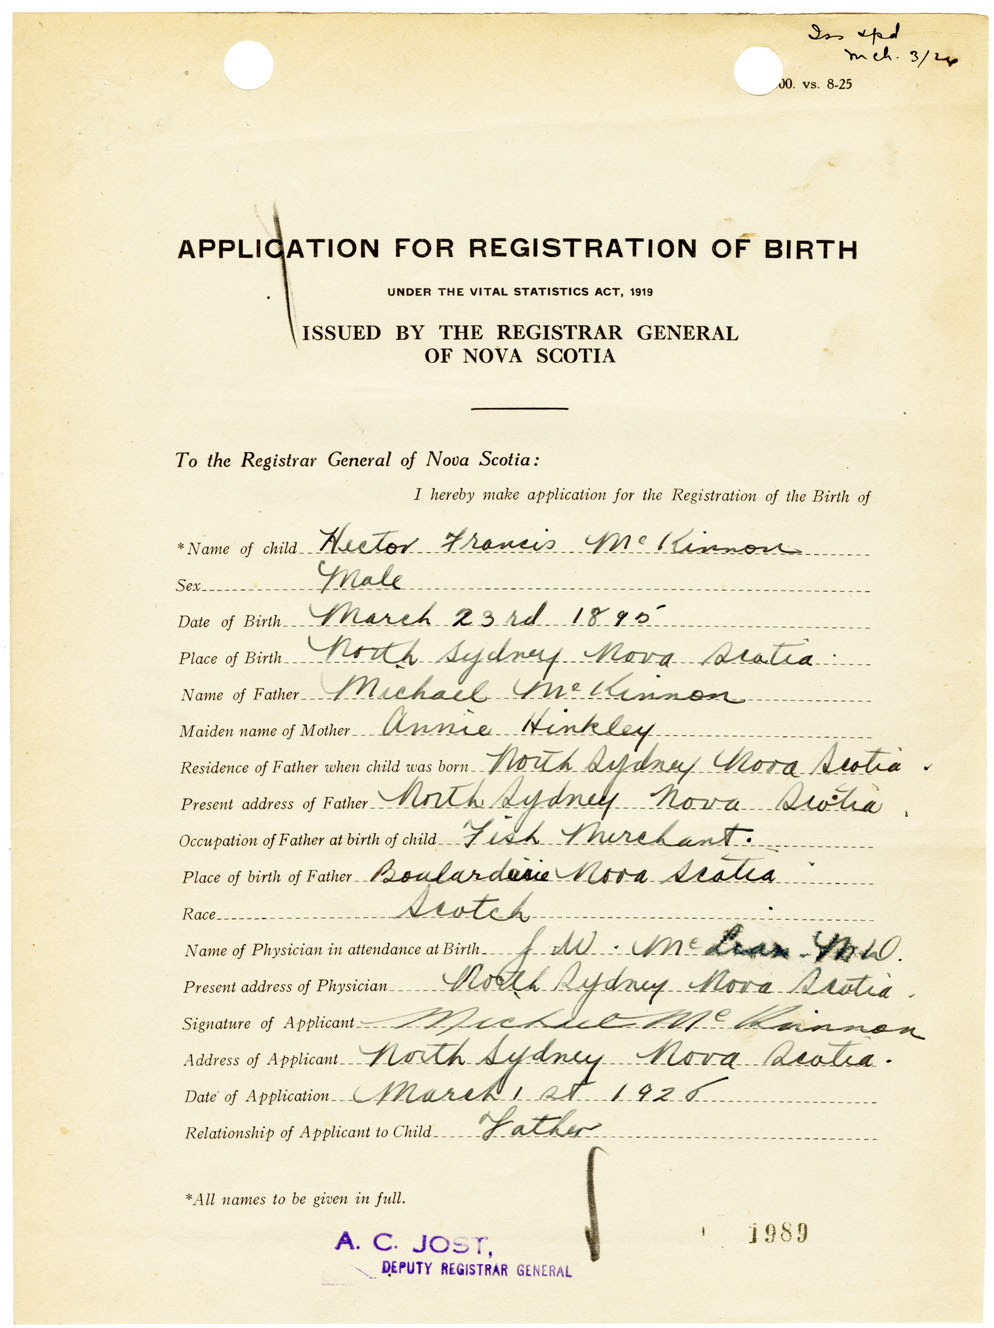 Iss & pd
Mch. 3/26
00. vs. 8-25
APPLICATION FOR REGISTRATION OF BIRTH
UNDER THE VITAL STATISTICS ACT, 1919
ISSUED BY THE REGISTRAR GENERAL
OF NOVA SCOTIA
To the Registrar General of Nova Scotia:
I hereby make application for the Registration of the Birth of
*Name of child Hector Francis McKinnon
Sex Male
Date of Birth March 23rd 1895
Place of Birth North Sydney Nova Scotia
Name of Father Michael McKinnon
Maiden name of Mother Annie Hinkley
Residence of Father when child was born North Sydney Nova Scotia.
Present address of Father North Sydney Nova Scotia.
Occupation of Father at birth of child Fish Merchant.
Place of birth of Father Boulardarie Nova Scotia
Race Scotch
Name of Physician in attendance at Birth J. W. McLean M.D.
Present address of Physician North Sydney Nova Scotia.
Signature of Applicant Michael McKinnon
Address of Applicant North Sydney Nova Scotia.
Date of Application March 1st 1926
Relationship of Applicant to Child Father
*All names to be given in full.
1989
A. C. JOST,
DEPUTY REGISTRAR GENERAL